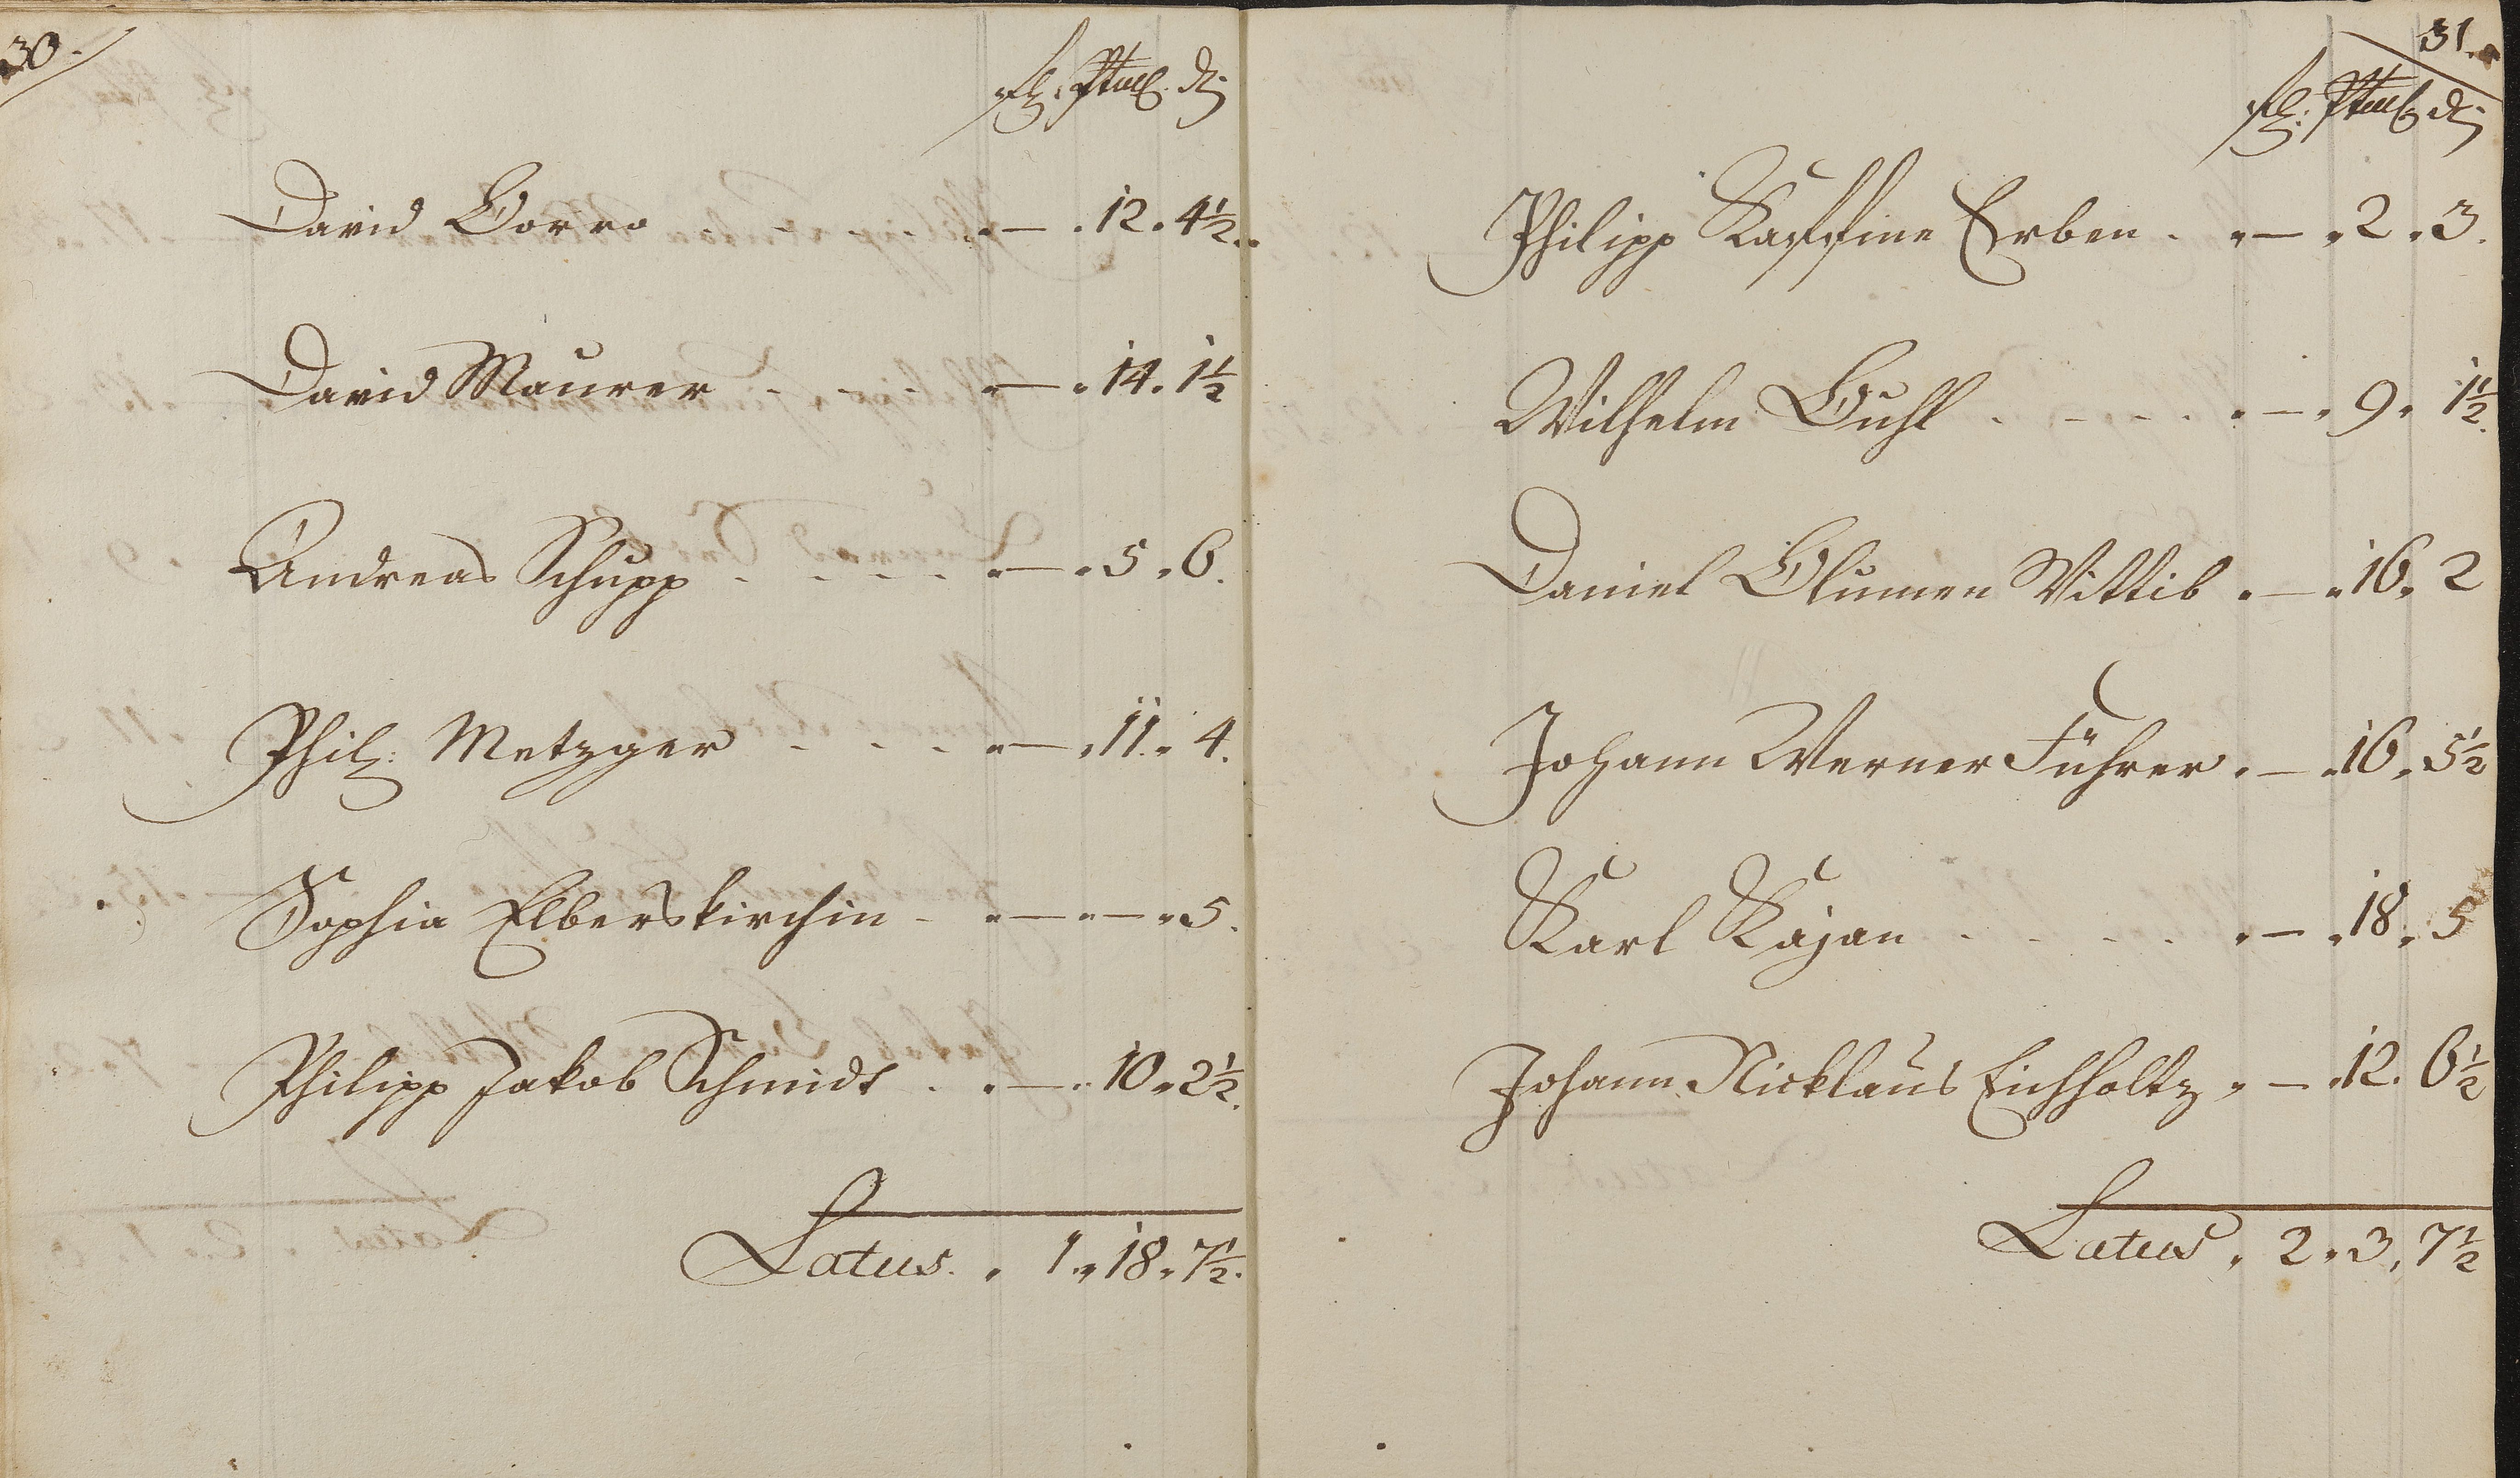 30.
fl. Stub. dz
David Borro . . . . . — . 12. 4½.
David Maurer . . . — . 14. 1½
Andreas Schupp . . . . — . 5. 6.
Phil: Metzger . . . — . 11. 4.
Sophia Elberskirchin . — . — . 5.
Philipp Jakob Schmidt . . — . 10. 2½.
Latus. . 1. 18. 7½.
31.
fl: Stub. dz
Philipp Erben . . — . 2. 3.
Wilhelm Buhl . . . . . — . 9. 1½.
Daniel Blumen Wittib . — . 16. 2
Johann Werner Führer . — . 16. 5½
Karl Kajan . . . . . — . 18. 5
Johann Nicklaus Eichholtz . — . 12. 6½
Latus . 2. 3. 7½